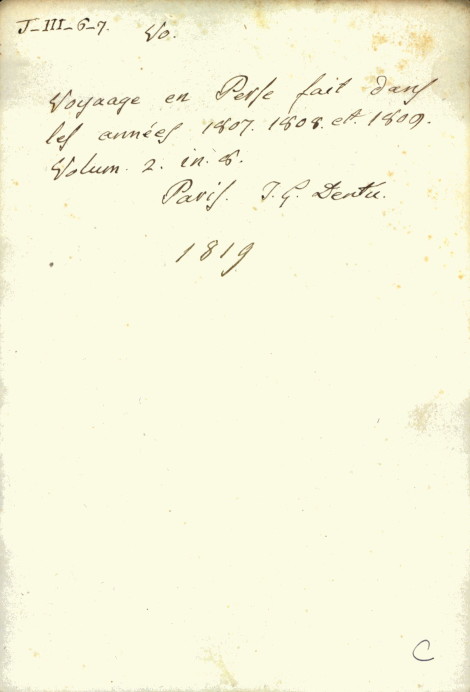 J-III-6-7. Vo.
Voyaage en Perse fait dans
les années 1807. 1808. et. 1809.
Volum. 2. in. 8.
Paris. J. G. Dentu.
1819
C